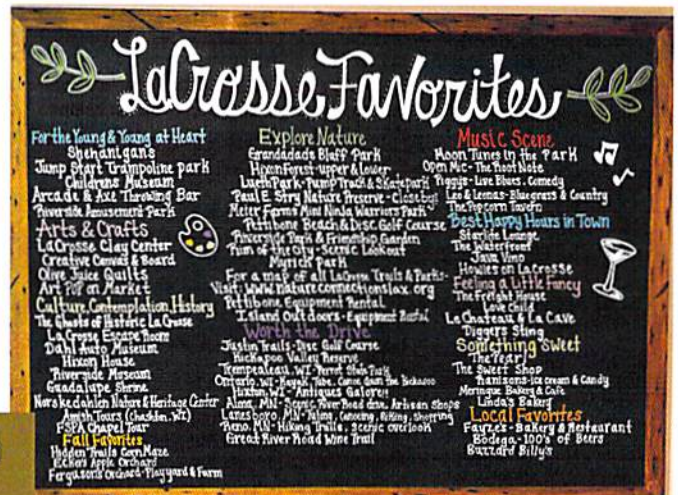 LaCrosse Favorites
For the Young & Young at Heart
Shenanigans
Jump Start Trampoline park
Childrens Museum
Arcade & Axe Throwing Bar
Riverside Amusement Park
Arts & Crafts
LaCrosse Clay Center
Creative Canvas & Board
Olive Juice Quilts
Art POP on Market
Culture, Contemplation, History
The Ghosts of Historic La Crosse
La Crosse Escape Room
Dahl Auto Museum
Hixon House
Riverside Museum
Guadalupe Shrine
Norskedahlen Nature & Heritage Center
Amish Tours (Chaseburg, WI)
FSPA Chapel Tour
Fall Favorites
Hidden Trails Corn Maze
Ecker's Apple Orchard
Ferguson's Orchard-Playyard & Farm
Explore Nature
Grandadads Bluff Park
Hixon Forest-upper & Lower
Lueth Park-Pump Track & Skatepark
Paul E. Stry Nature Preserve - Close by
Meier Farms Mini Ninja Warriors Park
Pettibone Beach & Disc Golf Course
Riverside Park & Friendship Garden
Rim of the City - Scenic Lookout
Myrick Park
For a map of all LaCrosse Trails & Parks-
Visit: www.natureconnectionslax.org
Pettibone Equipment Rental
Island Outdoors - Equipment Rental
Worth the Drive
Justin Trails - Disc Golf Course
Kickapoo Valley Reserve
Trempealeau, WI - Perrot State Park
Ontario, WI - Kayak, Tube, Canoe down the Kickapoo
Hixton, WI - Antiques Galore!!
Alma, MN - Scenic River Road drive, Artisan Shops
Lanesboro, MN - Canoeing, Biking, Shopping
Reno, MN - Hiking Trails, Scenic overlook
Great River Road Wine Trail
Music Scene
Moon Tunes in the Park
Open Mic - The Root Note
Piggy's - Live Blues, Comedy
Leo & Leonas - Bluegrass & Country
The Popcorn Tavern
Best Happy Hours in Town
Starlite Lounge
The Waterfront
Java Vino
Howies on LaCrosse
Feeling a Little Fancy
The Freight House
Love Child
Le Chateau & La Cave
Diggers Sting
Something Sweet
The Pearl
The Sweet Shop
Ranisons - Ice cream & Candy
Meringue Bakery & Cafe
Linda's Bakery
Local Favorites
Fayze's - Bakery & Restaurant
Bodega - 100's of Beers
Buzzard Billy's